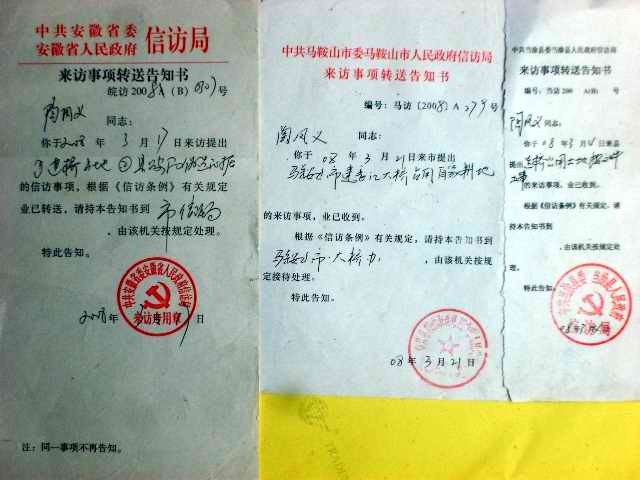 中共安徽省委
安徽省人民政府 信访局
来访事项转送告知书
皖访 2008 (B) 号
同志:
你于2008年 3 月 17日来访提出
的信访事项，根据《信访条例》有关规定
业已转送，请持本告知书到 市信访局
，由该机关按规定处理。
特此告知。
中共安徽省委安徽省人民政府信访局
来访专用章
2008年 日
注：同一事项不再告知。
中共马鞍山市委马鞍山市人民政府信访局
来访事项转送告知书
编号：马访［2008］A 279 号
同志：
你于 08 年 3 月 21日来市提出
马鞍山市建长江大桥占用 耕地
的来访事项，业已收到。
根据《信访条例》有关规定，请持本告知书到
马鞍山市大桥办 ，由该机关按规
定接待处理。
特此告知。
08 年 3 月 21 日
中共当涂县委当涂县人民政府信访局
来访事项转送告知书
编号：当访 200 A(B) 号
同志：
你于 08 年 3 月 4 日来县
提出
的来访事项，业已收到。
根据《信访条例》有关规定，请
持本告知书到
，由该机关按规定处
理。
特此告知。